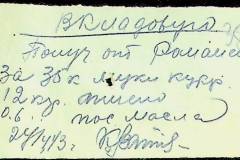 В Кладовую
Получ от Романь
За 35 к муки кукр.
12 кгр. пшено
0.6. пос масла
24/IV 43 г.